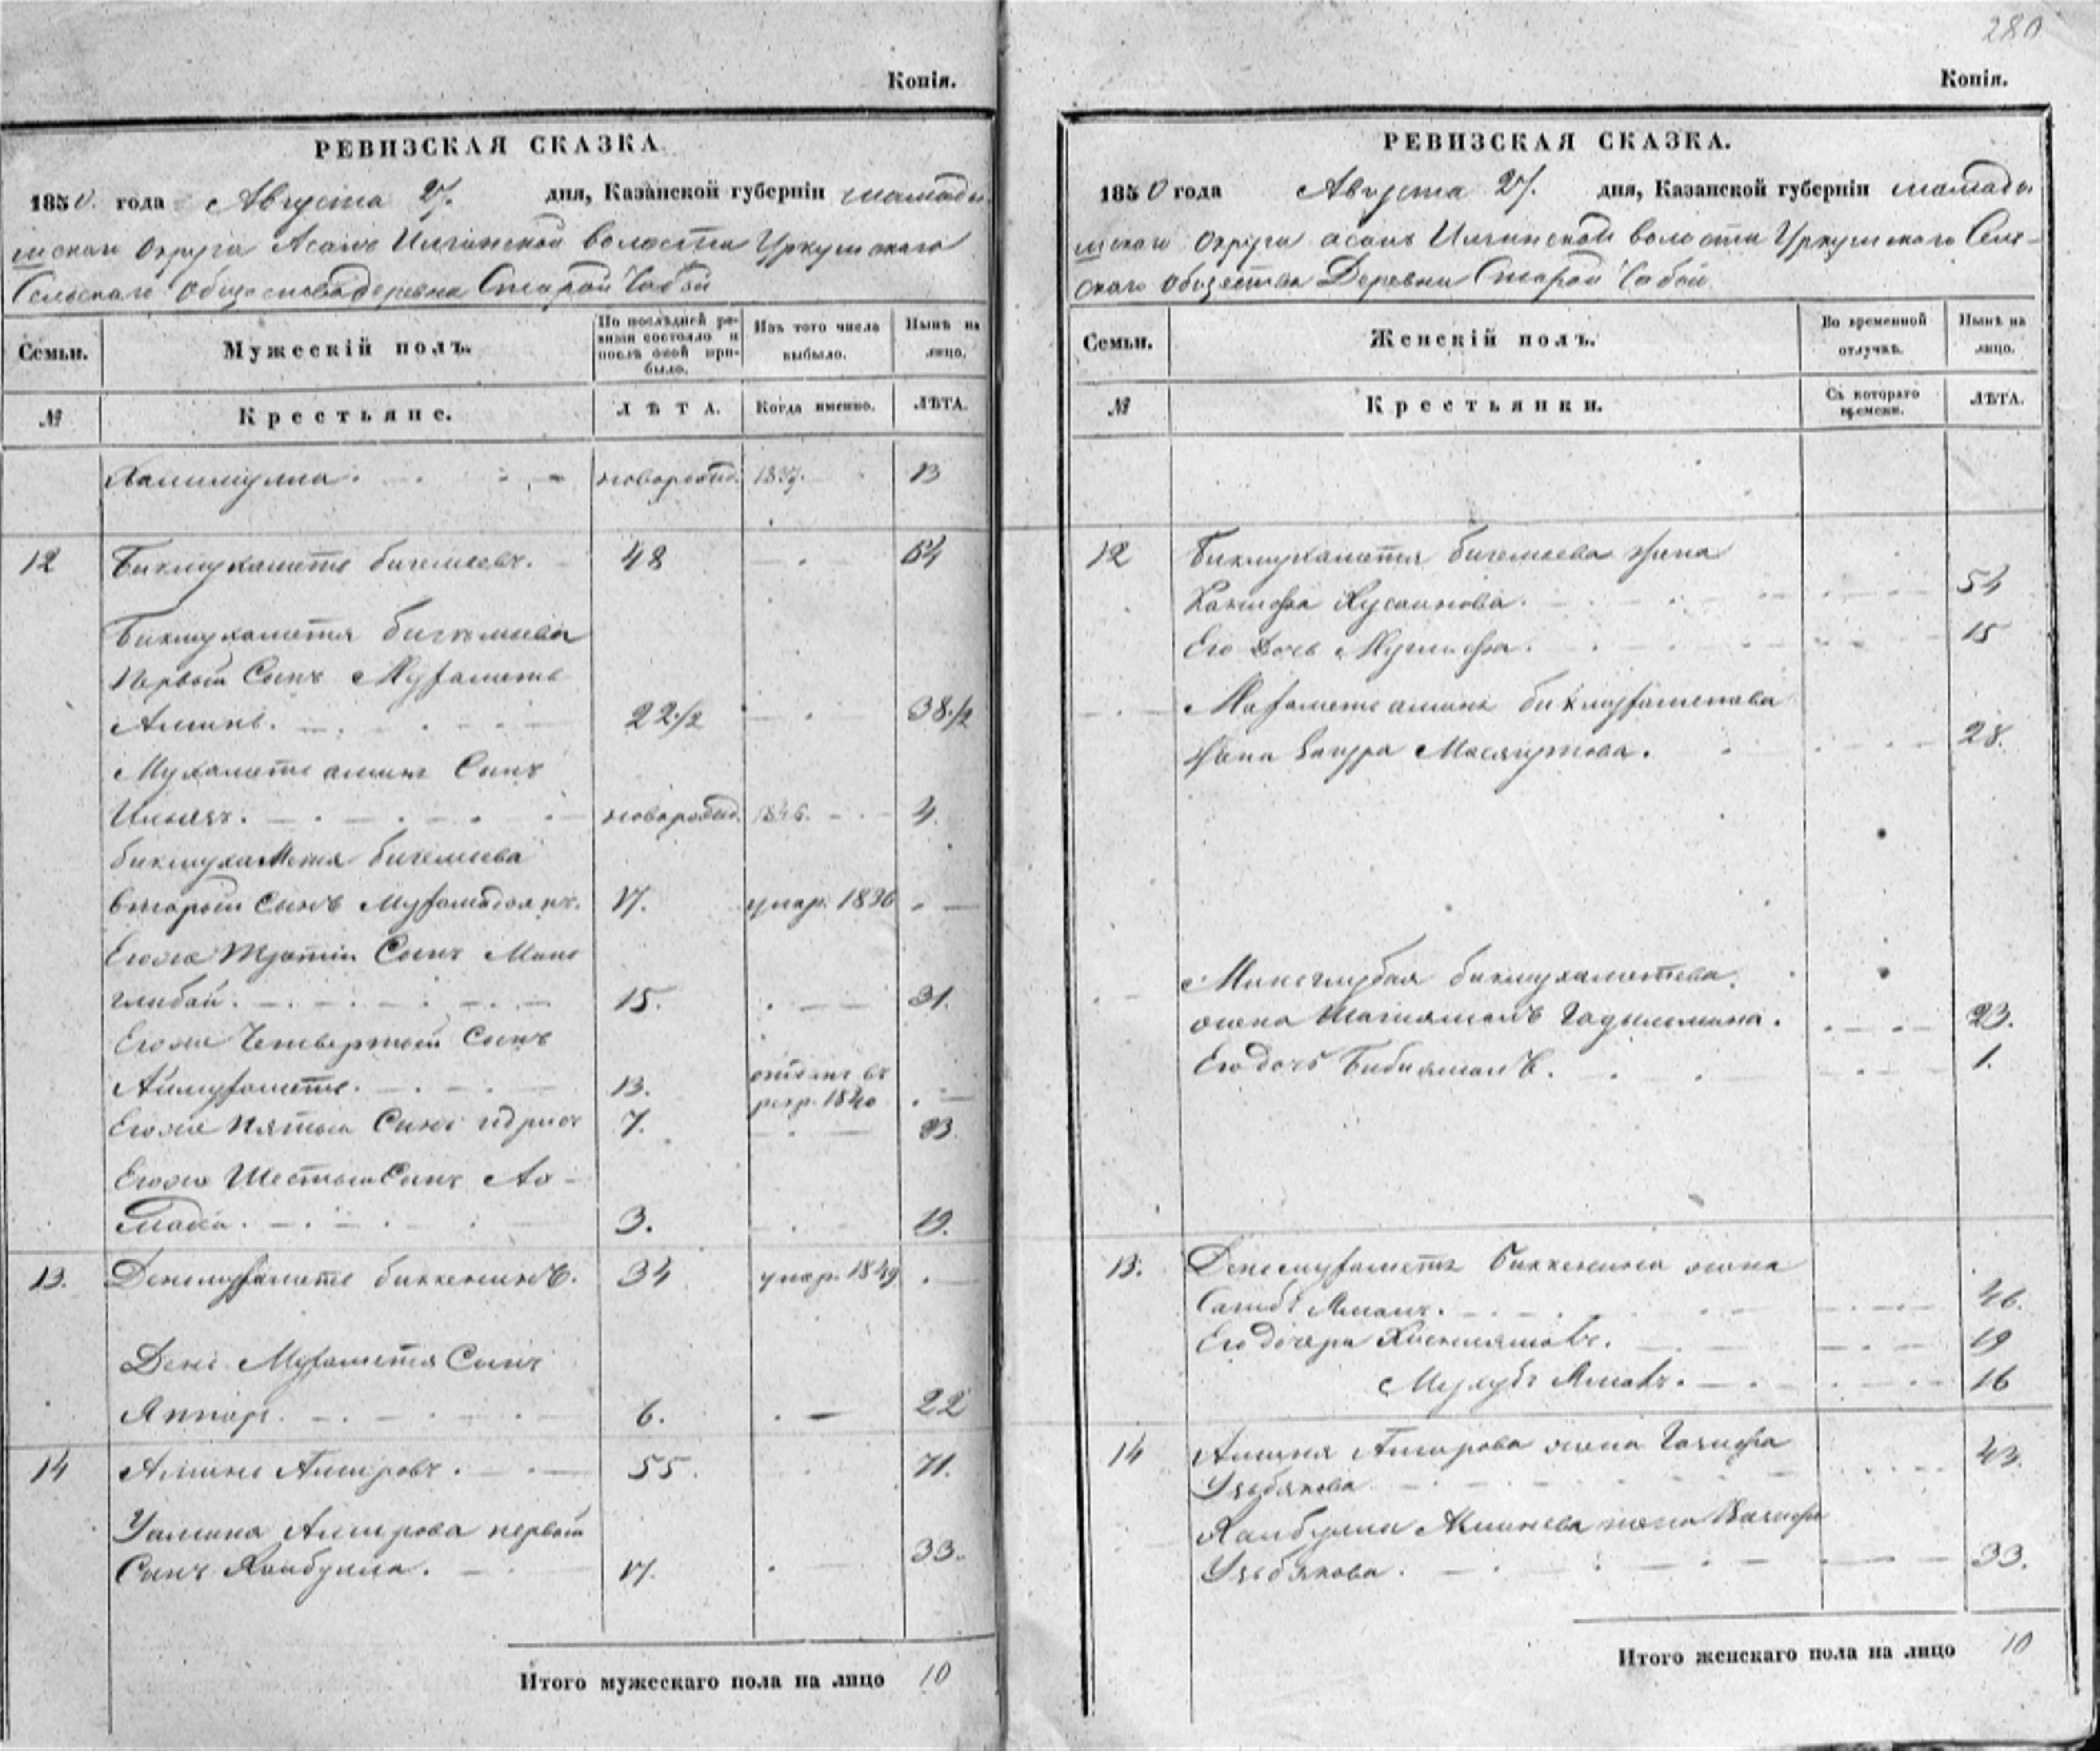 280
Копія.
РЕВИЗСКАЯ СКАЗКА
1850. года Августа 27. дня, Казанской губерніи мамады
шскаго Округа Асанъ Илгинской волости Уркушскаго
Сельскаго Общества деревни Старой Чабьи
Семьи.
Мужескій полъ.
По послѣдней ре-
визіи состояло и
послѣ оной при-
было.
Изъ того числа
выбыло.
Нынѣ на
лицо.
№
Крестьяне.
ЛѢТА.
Когда именно.
ЛѢТА.
новорожд. 1837. 13
12 Бикмухаметь бикмеевъ. 48 64
Бикмухаметя бикмиева
Первый Сынъ Мухаметь
Аминь. 22 1/2 38 1/2
Мухаметь аминя Сынъ
Ильязъ. новорожд. 1846. 4.
бикмухаметя бикмиева
второй сынъ 17. умер. 1836
Егоже третій Сынъ Минг
глибай. 15. 31.
Егоже Четвертый Сынъ
Аймухаметь. 13. отданъ въ
рекр. 1840
Егоже пятый Сынъ идрисъ 7. 23.
Егоже Шестый Сынъ Ах-
мадѣй. 3. 19.
13. Денмухаметь биккенинъ. 34 умер. 1849
День Мухаметя Сынъ
Яппаръ. 6. 22
14 Аминь Амировъ. 55. 71.
Амирова первый
Сынъ Хайбулла. 17. 33.
Итого мужескаго пола на лицо 10
Копія.
РЕВИЗСКАЯ СКАЗКА.
1850 года Августа 27. дня, Казанской губерніи мамады
шскаго Округа асанъ Илгинской волости Уркушскаго Сель-
скаго общества Деревни Старой Чабьи
Семьи.
Женскій полъ.
Во временной
отлучкѣ.
Нынѣ на
лицо.
№
Крестьянки.
Съ котораго
времени.
ЛѢТА.
12 Бикмухаметя бикмеева жена
Хусаинова. 54
Его дочь 15
Махаметь аминя бикмухаметева
жена 28.
Минглибая бикмухаметева
жена 23.
Его дочь Бибиямалъ. 1.
13. Денмухаметя Биккенина жена
46.
Его дочери 19
16
14 Аминя Амирова жена 43.
Узбякова
Хайбуллы Аминева жена
Узбякова. 33.
Итого женскаго пола на лицо 10